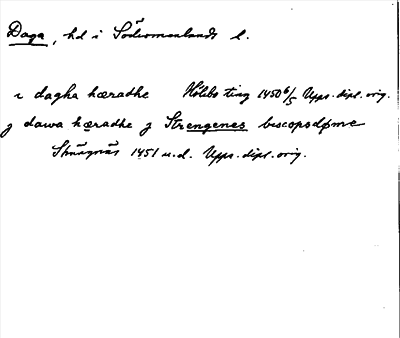 Daga, hd i Södermanlands l.
i dagha hæradhe Hölebo ting 1450 6/5 Upps. dipl. orig.
j dawa hæradhe j Strengenes bescopsdøme
Strängnäs 1451 u.d. Upps. dipl. orig.